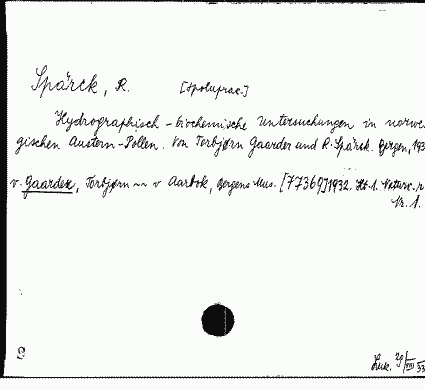 Spärck, R. [spoluprac.]
Hydrographisch-biochemische Untersuchungen in norwe-
gischen Austern-Pollen. Von Torbjørn Gaarder und R. Spärck. Bergen, 193
v. Gaarder, Torbjørn ~~ v Aarbok, Bergens Mus. [77369] 1932. Hft. 1. Naturv. r
Nr. 1.
Luk. 29/VIII 53